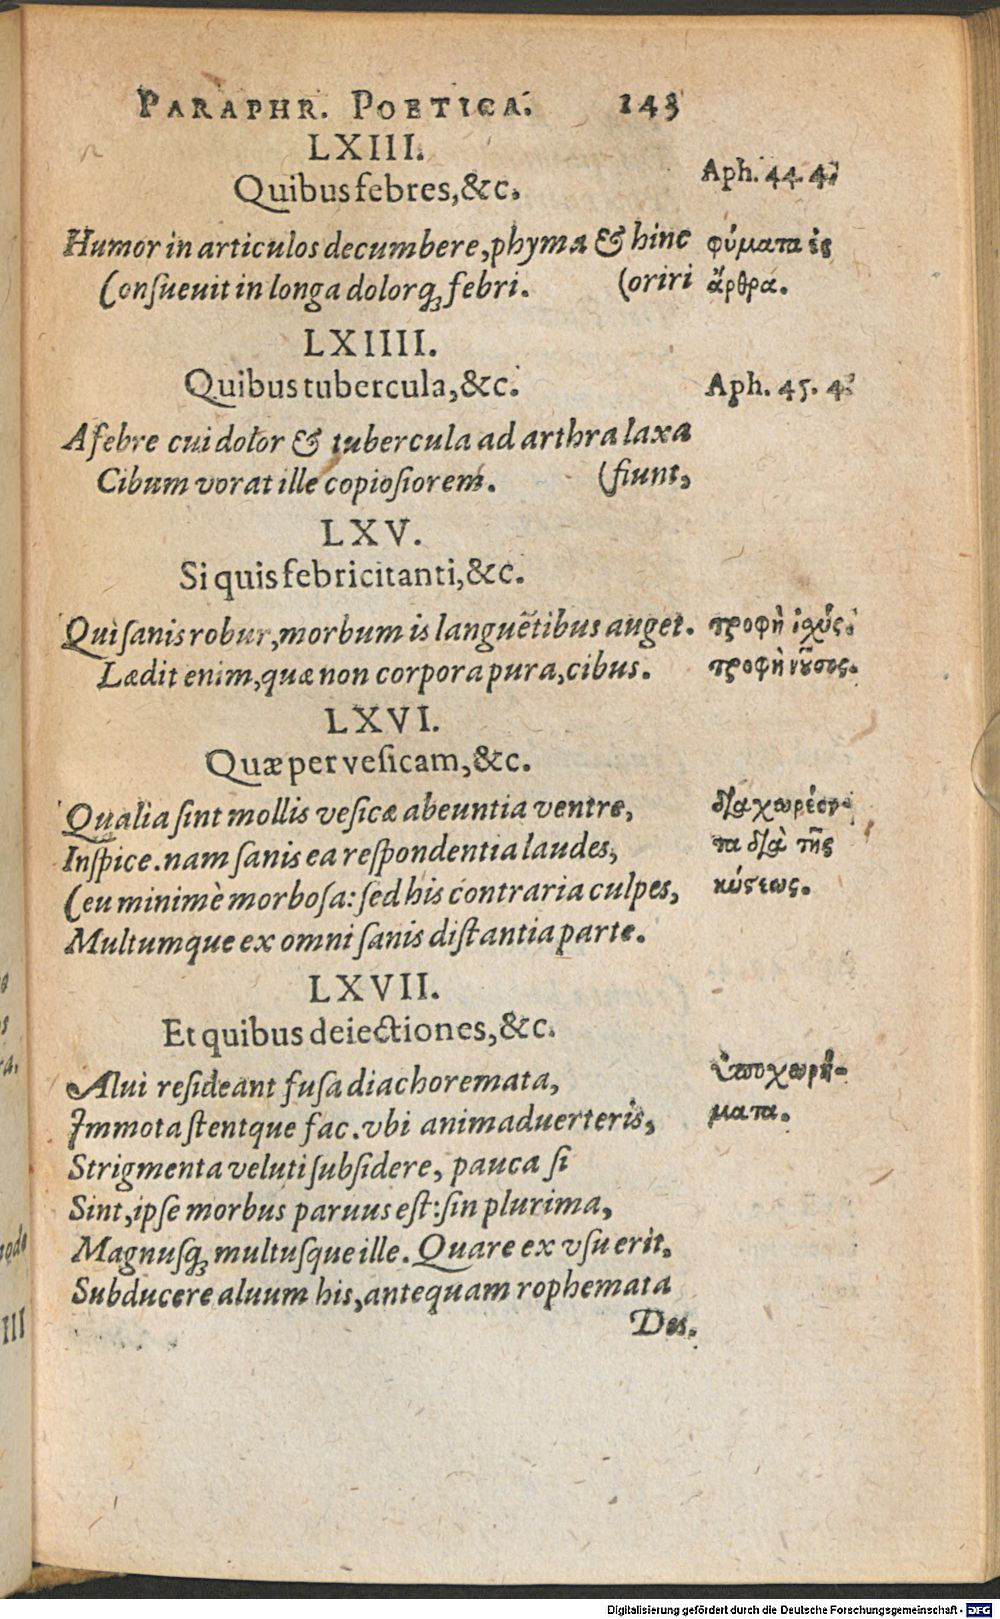 PARAPHR. POETICA. 143
LXIII.
Quibus febres, &c.
Aph. 44. 4.
Humor in articulos decumbere, phyma & hinc
(oriri
Consueuit in longa dolorq́ꝫ febri.
φύματα ἐς
ἄρθρα.
LXIIII.
Quibus tubercula, &c.
Aph. 45. 4.
A febre cui dolor & tubercula ad arthra laxa
(fiunt,
Cibum vorat ille copiosiorem.
LXV.
Si quis febricitanti, &c.
Qui sanis robur, morbum is languẽtibus auget.
Lædit enim, quæ non corpora pura, cibus.
τροφὴ ἰχύς.
τροφὴ νοῦσος.
LXVI.
Quæ per vesicam, &c.
Qualia sint mollis vesicæ abeuntia ventre,
Inspice. nam sanis ea respondentia laudes,
Ceu minimè morbosa: sed his contraria culpes,
Multumque ex omni sanis distantia parte.
διαχωρέον-
τα διὰ τῆς
κύστεως.
LXVII.
Et quibus deiectiones, &c.
Alui resideant fusa diachoremata,
Immota stentque fac. vbi animaduerteris,
Strigmenta veluti subsidere, pauca si
Sint, ipse morbus paruus est: sin plurima,
Magnusq́ꝫ multusque ille. Quare ex vsu erit,
Subducere aluum his, antequam rophemata
ὑποχωρή-
ματα.
Des.
Digitalisierung gefördert durch die Deutsche Forschungsgemeinschaft - DFG